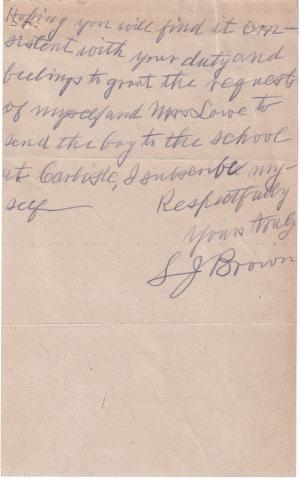 Hoping you will find it con-
sistent with your duty and
feelings to grant the requests
of myself and Mrs Lowe to
send the boy to the school
at Carlisle, I subscribe my-
self Respectfully
Yours truly
S J Brown